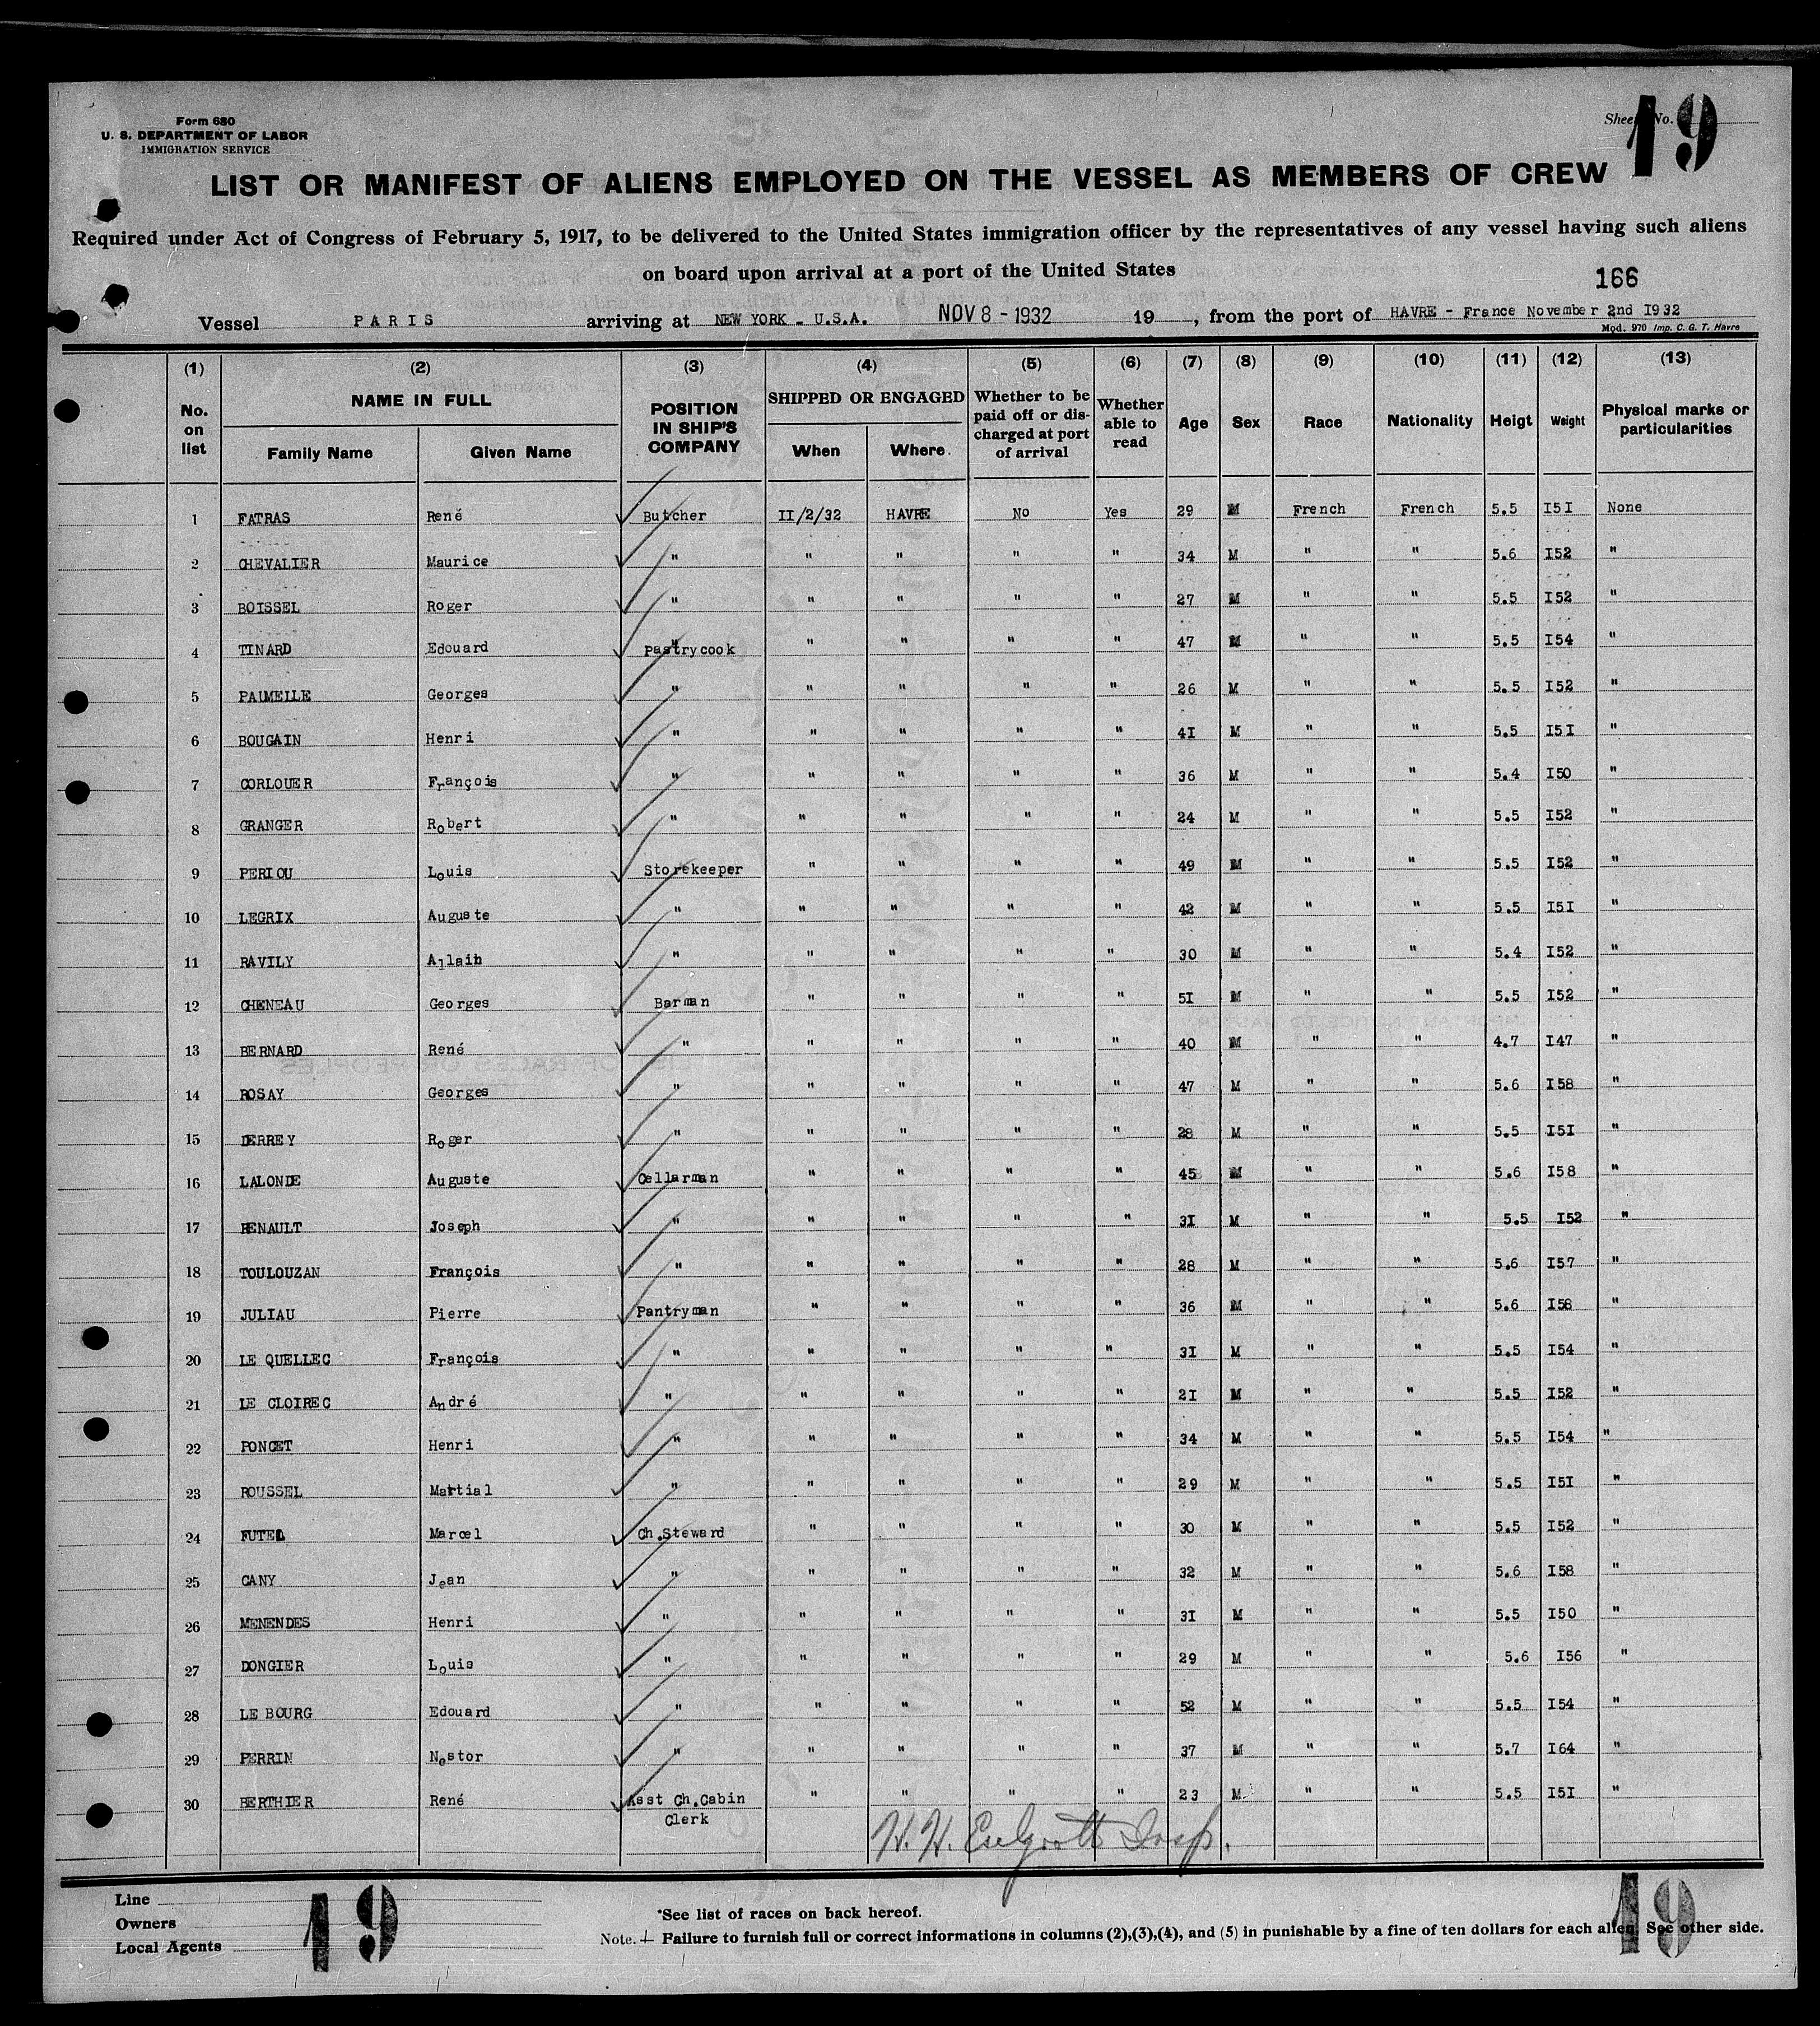 Form 680
U. S. DEPARTMENT OF LABOR
IMMIGRATION SERVICE
Sheet No. 19
LIST OR MANIFEST OF ALIENS EMPLOYED ON THE VESSEL AS MEMBERS OF CREW
Required under Act of Congress of February 5, 1917, to be delivered to the United States immigration officer by the representatives of any vessel having such aliens
on board upon arrival at a port of the United States
166
Vessel PARIS arriving at NEW YORK - U.S.A. NOV 8 - 1932 19 , from the port of HAVRE - France November 2nd I932
Mod. 970 Imp. C. G. T. Havre
(1) (2) (3) (4) (5) (6) (7) (8) (9) (10) (11) (12) (13)
No. on list NAME IN FULL Family Name Given Name POSITION IN SHIP'S COMPANY SHIPPED OR ENGAGED When Where. Whether to be paid off or discharged at port of arrival Whether able to read Age Sex Race Nationality Heigt Weight Physical marks or particularities
1 FATRAS René Butcher II/2/32 HAVRE No Yes 29 M French French 5.5 I5I None
2 CHEVALIER Maurice " " " " " 34 M " " 5.6 I52 "
3 BOISSEL Roger " " " " " 27 M " " 5.5 I52 "
4 TINARD Edouard Pastrycook " " " " 47 M " " 5.5 I54 "
5 PAUMELLE Georges " " " " " 26 M " " 5.5 I52 "
6 BOUGAIN Henri " " " " " 4I M " " 5.5 I5I "
7 CORLOUER François " " " " " 36 M " " 5.4 I50 "
8 GRANGER Robert " " " " " 24 M " " 5.5 I52 "
9 PERIOU Louis Storekeeper " " " " 49 M " " 5.5 I52 "
10 LEGRIX Auguste " " " " " 42 M " " 5.5 I5I "
11 RAVILY Allain " " " " " 30 M " " 5.4 I52 "
12 CHENEAU Georges Barman " " " " 5I M " " 5.5 I52 "
13 BERNARD René " " " " " 40 M " " 4.7 I47 "
14 ROSAY Georges " " " " " 47 M " " 5.6 I58 "
15 DERREY Roger " " " " " 28 M " " 5.5 I5I "
16 LALONDE Auguste Cellarman " " " " 45 M " " 5.6 I58 "
17 RENAULT Joseph " " " " " 3I M " " 5.5 I52 "
18 TOULOUZAN François " " " " " 28 M " " 5.6 I57 "
19 JULIAU Pierre Pantryman " " " " 36 M " " 5.6 I58 "
20 LE QUELLEC François " " " " " 3I M " " 5.5 I54 "
21 LE CLOIREC André " " " " " 2I M " " 5.5 I52 "
22 PONCET Henri " " " " " 34 M " " 5.5 I54 "
23 ROUSSEL Martial " " " " " 29 M " " 5.5 I5I "
24 FUTEL Marcel Ch.Steward " " " " 30 M " " 5.5 I52 "
25 CANY Jean " " " " " 32 M " " 5.6 I58 "
26 MENENDES Henri " " " " " 3I M " " 5.5 I50 "
27 DONGIER Louis " " " " " 29 M " " 5.6 I56 "
28 LE BOURG Edouard " " " " " 52 M " " 5.5 I54 "
29 PERRIN Nestor " " " " " 37 M " " 5.7 I64 "
30 BERTHIER René Asst Ch.Cabin " " " " 23 M " " 5.5 I5I "
Clerk
H. H. Insp.
Line
Owners
Local Agents
19
19
*See list of races on back hereof.
Note. Failure to furnish full or correct informations in columns (2),(3),(4), and (5) in punishable by a fine of ten dollars for each alien. See other side.